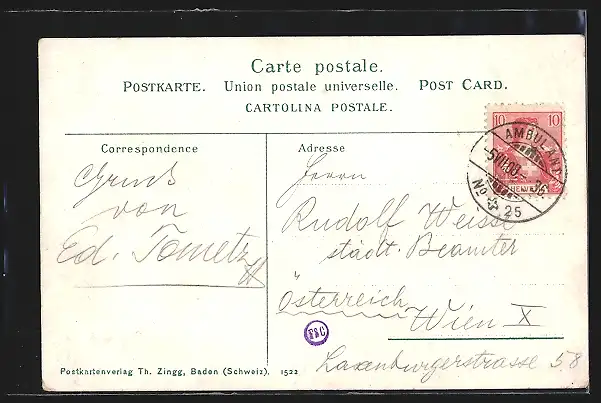 Carte postale.
POSTKARTE. Union postale universelle. POST CARD.
CARTOLINA POSTALE.
10 10
HELVETIA
AMBULANT
No 25
Correspondence
Adresse
Gruß
von
Ed. Tometz
Herrn
Rudolf Weisse
städt. Beamter
Österreich
Wien X
Laxenburgerstrasse 58
Postkartenverlag Th. Zingg, Baden (Schweiz). 1522